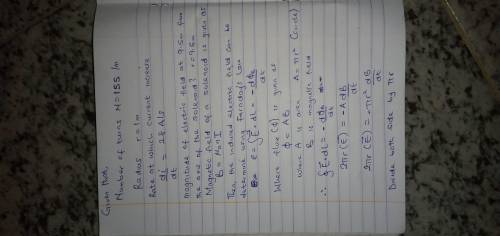 Given that,
Number of turns N = 155 /m
Radius r = 1m
Rate at which current increase
di/dt = 28 A/s
magnitude of electric field at 9.5m from
the axis of the solenoid? r = 9.5m
Magnetic field of a solenoid is given as
B = μonI
Then, the induced electric field can be
determine using Faraday's law
ε = ∮Ē•dL = -dΦB/dt
Where flux (Φ) is given as
Φ = AB
Where A is area A = πr² (Circle)
B is magnetic field
∴ ∮Ē•dL = -dΦB/dt
2πr (Ē) = -A dB/dt
2πr (Ē) = -πr² dB/dt
Divide both side by πr